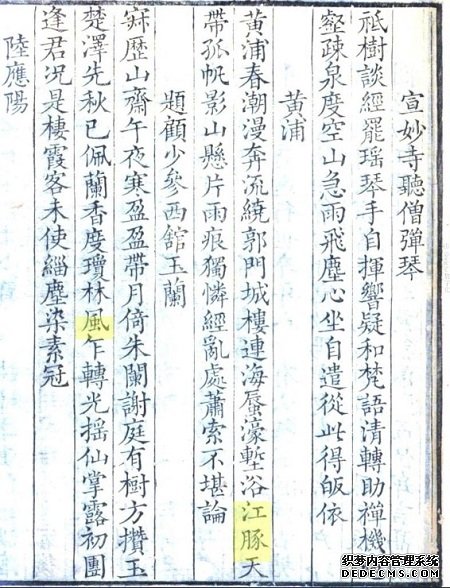 宣妙寺聽僧彈琴
祗樹談經罷瑤琴手自揮響疑和梵語清轉助禪機
壑疎泉度空山急雨飛塵心坐自遣從此得皈依
黄浦
黄浦春潮漫奔流繞郭門城樓連海蜃濠塹浴江豚天
帶孤帆影山懸片雨痕獨憐經亂處蕭索不堪論
題顧少參西館玉蘭
寂歷山齋午夜寒盈盈帶月倚朱闌謝庭有樹方攢玉
楚澤先秋已佩蘭香度瓊林風乍轉光揺仙掌露初團
逢君况是棲霞客未使緇塵染素冠
陸應陽
织梦内容管理系统
DEDECMS.COM